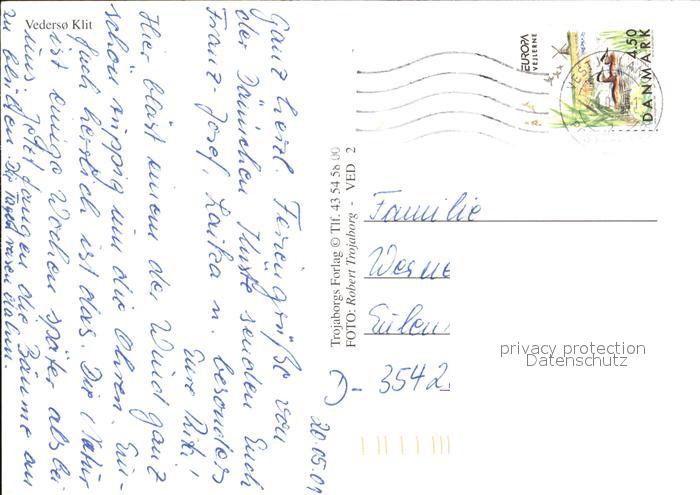 Vedersø Klit
Ganz herzl. Feriengrüße von
der Dänischen Küste senden Euch
Franz-Josef, Laika u. besonders
Eure Rita!
Hier bläst einem der Wind ganz
schön ruppig um die Ohren. Ein-
fach herrlich ist das. Die Natur
ist einige Wochen später als bei
uns. Jetzt fangen die Bäume an
zu blühen. Die Tage
20.05.01
Trojaborgs Forlag © Tlf. 43 54 58 00
FOTO: Robert Trojaborg - VED 2
EUROPA
VEJLERNE
4.50
DANMARK
Familie
Werne
Eulen
D-3542
privacy protection
Datenschutz